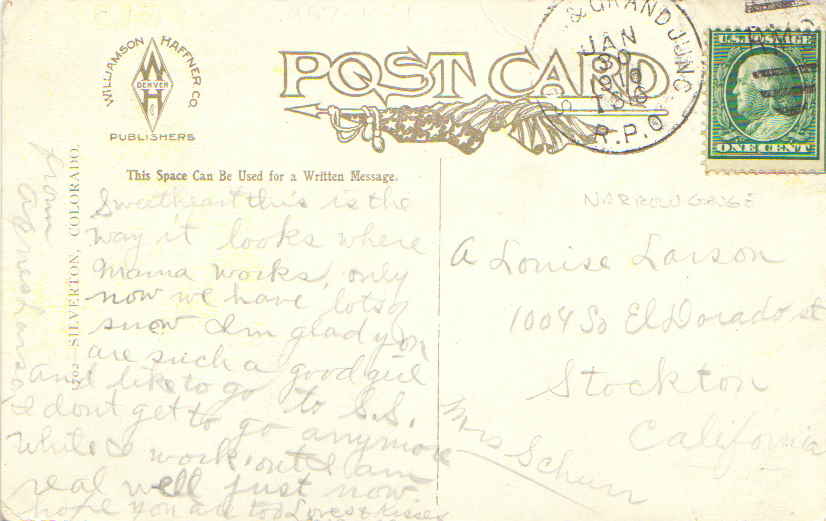 WILLIAMSON HAFFNER CO.
DENVER
PUBLISHERS
POST CARD
& GRAND JUNC
JAN
30
1910
R.P.O.
U.S. POSTAGE
ONE CENT
This Space Can Be Used for a Written Message.
SILVERTON, COLORADO.
NARROW GAUGE
Sweetheart this is the
way it looks where
mama works, only
now we have lots of
snow I'm glad you
are such a good girl
and like to go to S.S.
I dont get to go anymore
while I work out I am
real well just now
hope you are too Loves & Kisses
from
Agnes Larson
A Louise Larson
1004 So El Dorado st
Stockton
California
Mrs Schurr